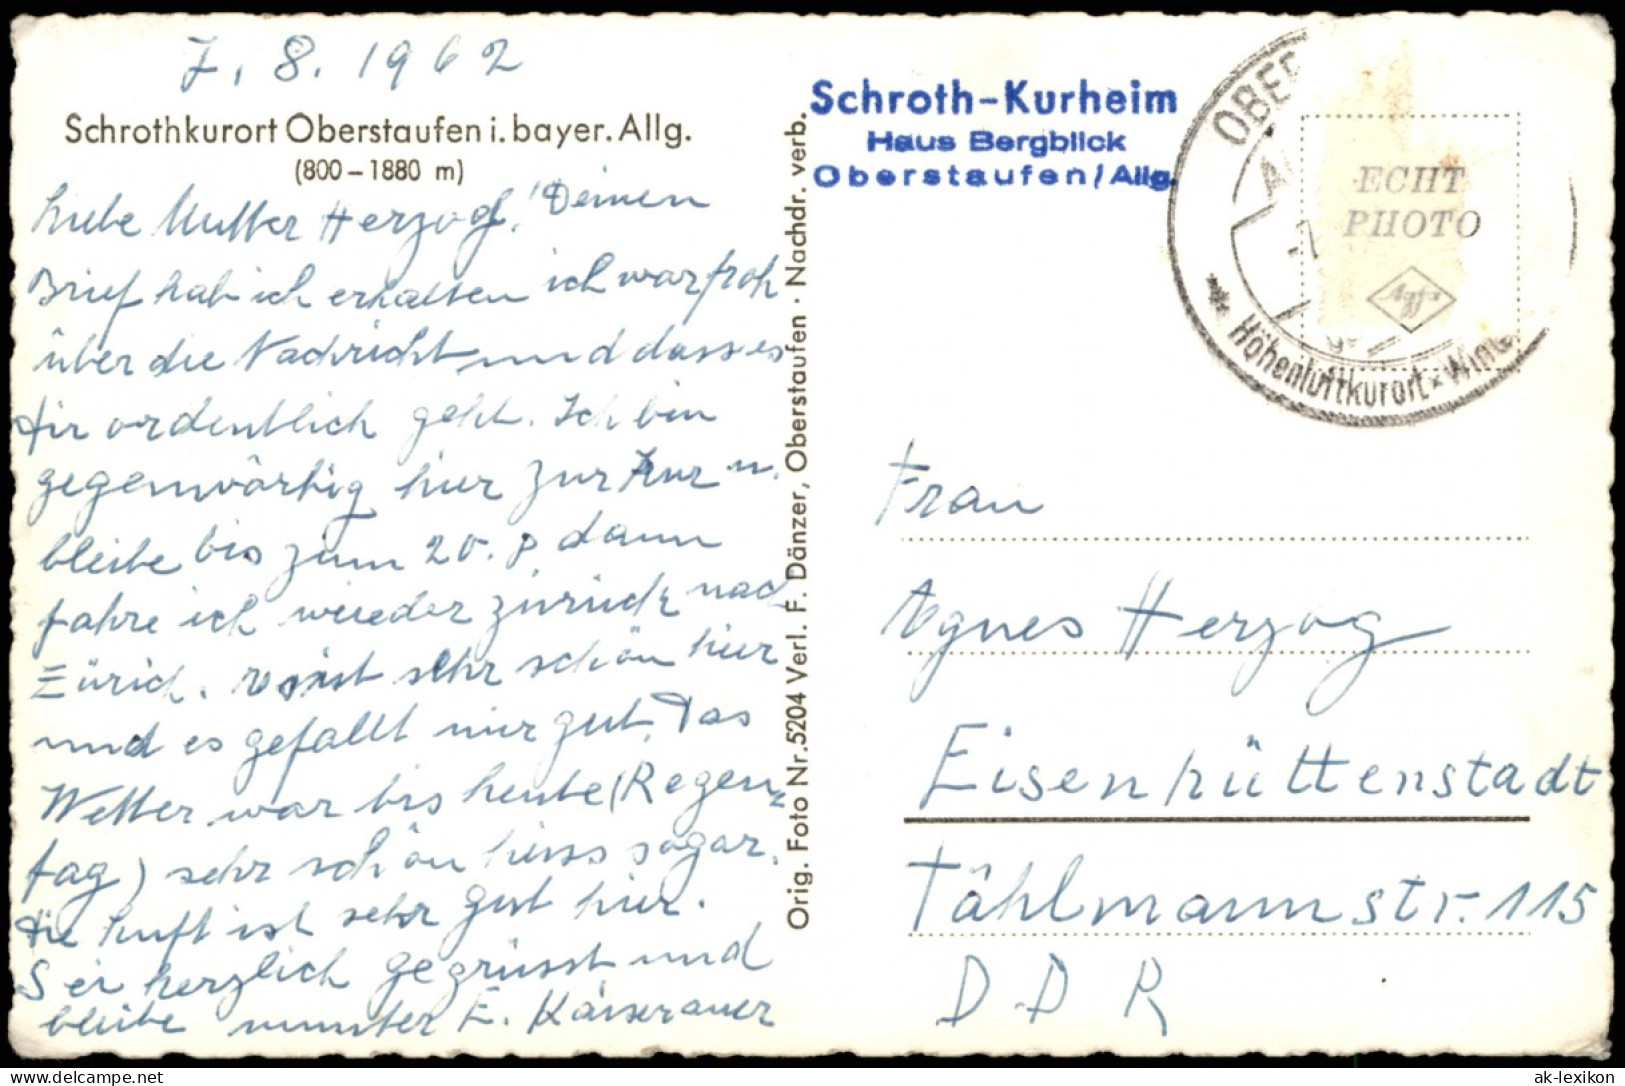 7. 8. 1962
Schrothkurort Oberstaufen i. bayer. Allg.
(800 – 1880 m)
Liebe Mutter Herzog! Deinen
Brief hab ich erhalten ich war froh
über die Nachricht und dass es
dir ordentlich geht. Ich bin
gegenwärtig hier zur Kur u.
bleibe bis zum 20. 8. dann
fahre ich wieder zurück nach
Zürich. ist sehr schön hier
und es gefällt mir gut. Das
Wetter war bis heute (Regen=
tag) sehr schön heiss sogar.
die Luft ist sehr gut hier.
Sei herzlich gegrüsst und
bleibe munter E. Kaiserauer
Orig. Foto Nr. 5204 Verl. F. Dänzer, Oberstaufen · Nachdr. verb.
Schroth-Kurheim
Haus Bergblick
Oberstaufen/Allg.
OBER
Höhenluftkurort × Win
ECHT
PHOTO
Agfa
Frau
Agnes Herzog
Eisenhüttenstadt
Tählmannstr. 115
D. D. R
ak-lexikon
delcampe.net